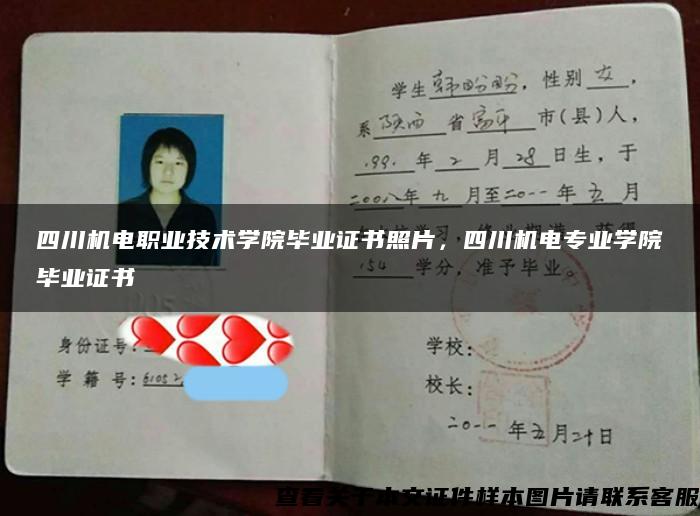 学生韩盼盼，性别女，
系陕西省富平市(县)人，
1991年2月28日生，于
二00八年九月至二0一一年五月
154学分，准予毕业。
四川机电职业技术学院毕业证书照片，四川机电专业学院
毕业证书
身份证号:
学籍号:61052
学校:
校长:
二0一一年五月二十日
查看关于本文证件样本图片请联系客服